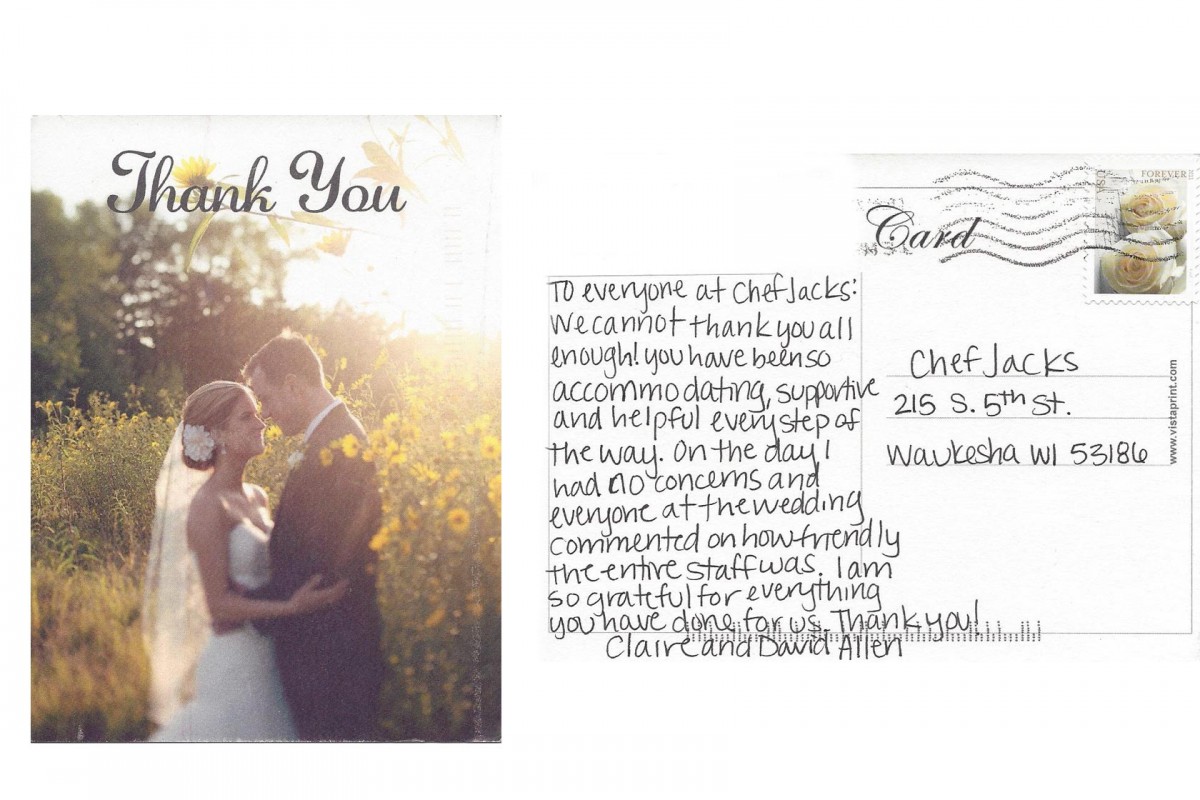 Thank You
FOREVER
USA
Card
To everyone at Chef Jacks:
We cannot thank you all
enough! you have been so
accommodating, supportive
and helpful every step of
the way. On the day I
had no concerns and
everyone at the wedding
commented on how friendly
the entire staff was. I am
so grateful for everything
you have done for us. Thank you!
Claire and David Allen
Chef Jacks
215 S. 5th St.
Waukesha WI 53186
www.vistaprint.com